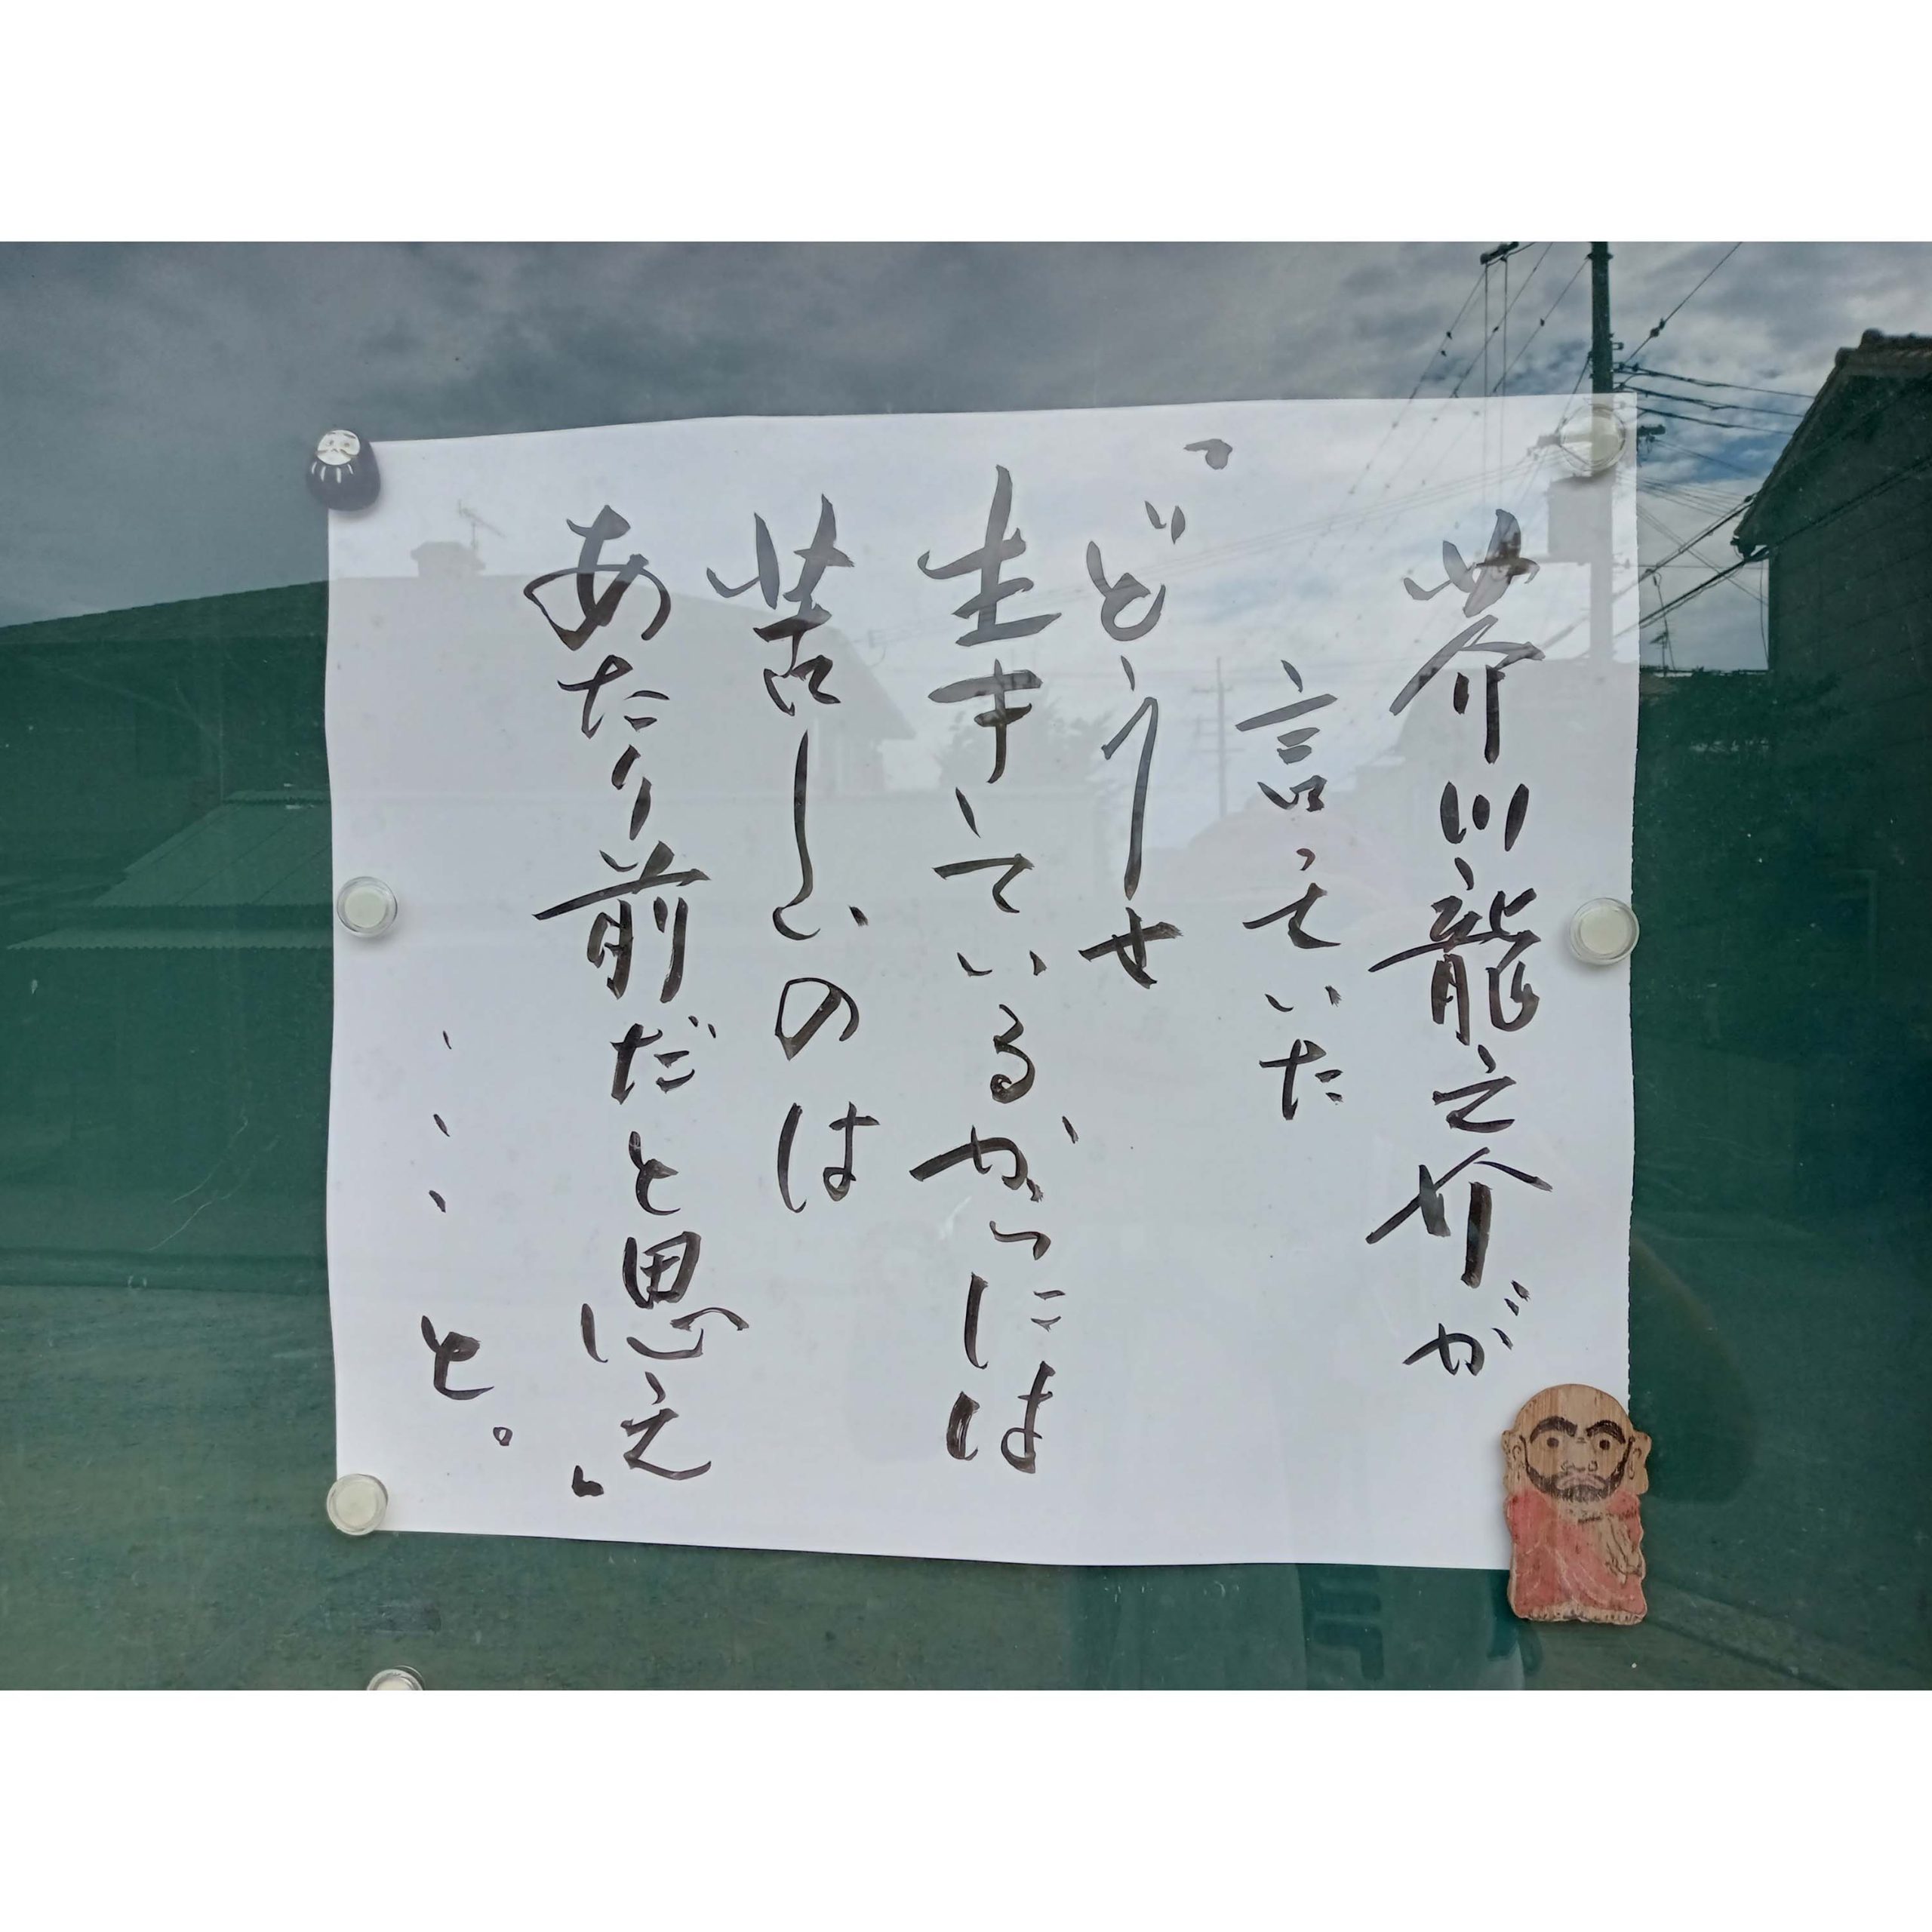 芥川龍之介が
言っていた
「どうせ
生きているからには
苦しいのは
あたり前だと思え」
・・・と。